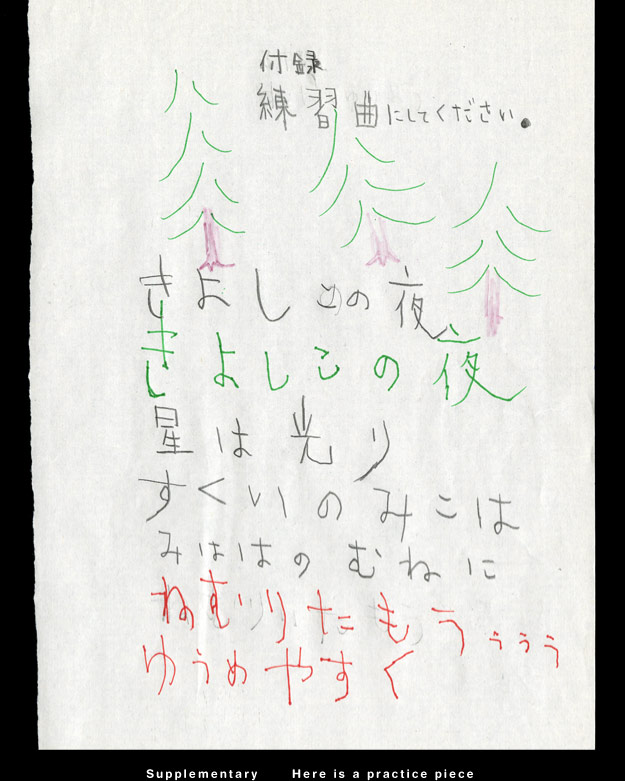 付録
練習曲にしてください。
きよしこの夜
きよしこの夜
星は光り
すくいのみこは
みははの むねに
ねむりたもうぅぅぅ
ゆぅめやすく
Supplementary Here is a practice piece